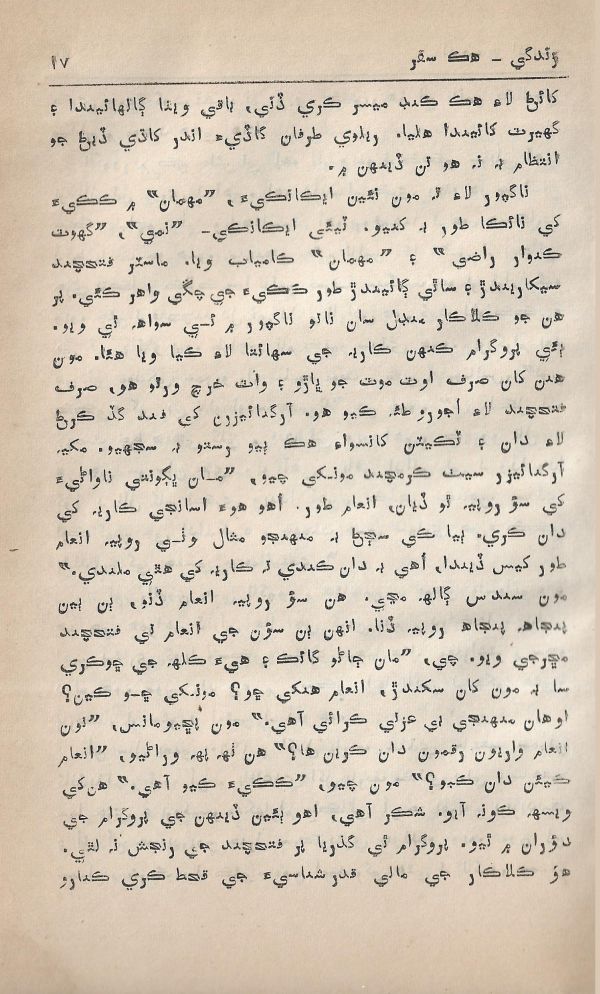 زندگي - هڪ سفر ١٧
کائڻ لاءِ هڪ ڪنڊ ميسر ڪري ڏني، باقي ويٺا ڳالهائيندا ۽
گهيرٽ کائيندا هليا. ريلوي طرفان گاڏيءَ اندر کاڌي ڏيڻ جو
انتظام بہ نہ هو تن ڏينهن ۾.
ناگپور لاءِ تہ مون نئين ايڪانڪيءَ، ”مهمان“ ۾ ڪڪيءَ
کي ناٽڪا طور بہ کنيو. ٽيئي ايڪانڪي- ”نمي“، ”گهوٽ
ڪنوار راضي“ ۽ ”مهمان“ ڪامياب ويا. ماسٽر فتحچند
سيکاريندڙ ۽ ساٿي ڳائيندڙ طور ڪڪيءَ جي چڱي واهر ڪئي. پر
هن جو ڪلاڪار منڊل سان ناتو ناگپور ۾ ئي سواهہ ٿي ويو.
ٻئي پروگرام ڪنهن ڪاريہ جي سهائتا لاءِ ڪيا ويا هئا. مون
هنن کان صرف اوت موت جو ڀاڙو ۽ واٽ خرچ ورتو هو، صرف
فتحچند لاءِ اُجورو طئہ ڪيو هو. آرگنائيزرن کي فنڊ گڏ ڪرڻ
لاءِ دان ۽ ٽڪيٽن کانسواءِ هڪ ٻيو رستو بہ سجهيو. مکيہ
آرگنائيزر سيٺ ڪرمچند مونکي چيو، ”مان ڀڳونتي ناواڻيءَ
کي سؤ روپيہ ٿو ڏيان، انعام طور. اُهو هوءَ اسانجي ڪاريہ کي
دان ڪري. ٻيا کي سڄڻ بہ منهنجو مثال وٺي روپيہ انعام
طور کيس ڏيندا، اُهي بہ دان ڪندي تہ ڪاريہ کي هٿي ملندي.“
مون سندس ڳالهہ مڃي. هن سؤ روپيہ انعام ڏنو، ٻن ٻين
پنجاهہ پنجاهہ روپيہ ڏنا. انهن ٻن سؤن جي انعام تي فتحچند
مڇرجي ويو. چي، ”مان ڄاڻو گائڪ ۽ هيءَ ڪلهہ جي ڇوڪري
سا بہ مون کان سکندڙ، انعام هنکي ڇو؟ مونکي ڇو ڪين؟
اوهان منهنجي بي عزتي ڪرائي آهي.“ مون پڇيومانس، ”تون
انعام واريون رقمون دان ڪرين ها؟“ هن ٺهہ پهہ وراڻيو، ”انعام
ڪيئن دان ڪيو؟“ مون چيو، ”ڪڪيءَ ڪيو آهي.“ هن کي
ويسهہ ڪونہ آيو. شڪر آهي، اهو ٻئين ڏينهن جي پروگرام جي
دؤران ۾ ٿيو. پروگرام ٿي گذريا پر فتحچند جي رنجش نہ لٿي.
هؤ ڪلاڪار جي مالي قدرشناسيءَ جي قحط ڪري ڪنارو